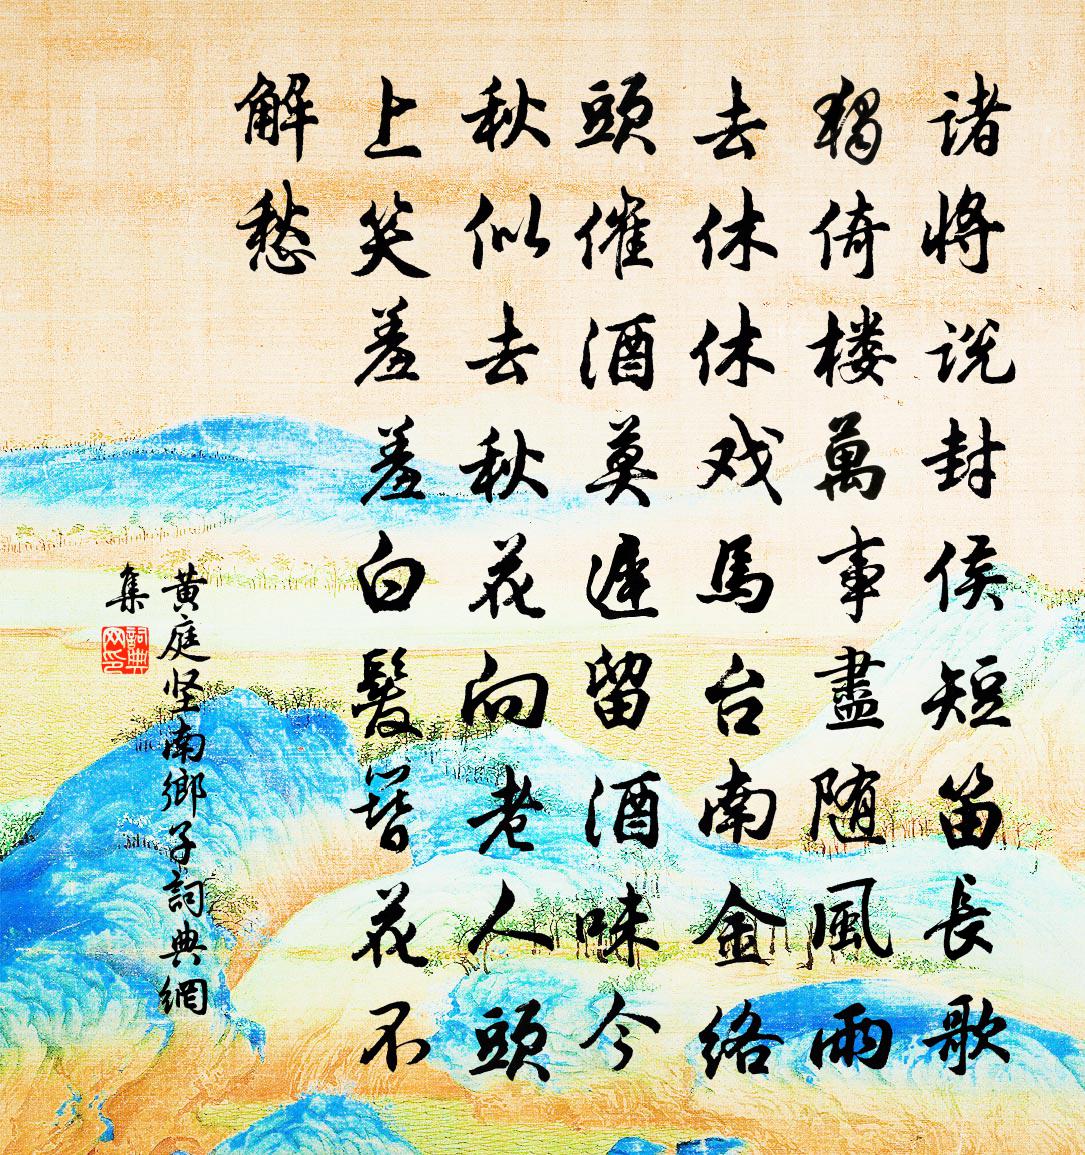 诸将说封侯短笛長歌
獨倚楼萬事盡随風雨
去休休戏馬台南金络
頭催酒莫遲留酒味今
秋似去秋花向老人頭
上笑羞羞白髮簪花不
解愁
黄庭坚南鄉子詞典網
集
詞典
网印